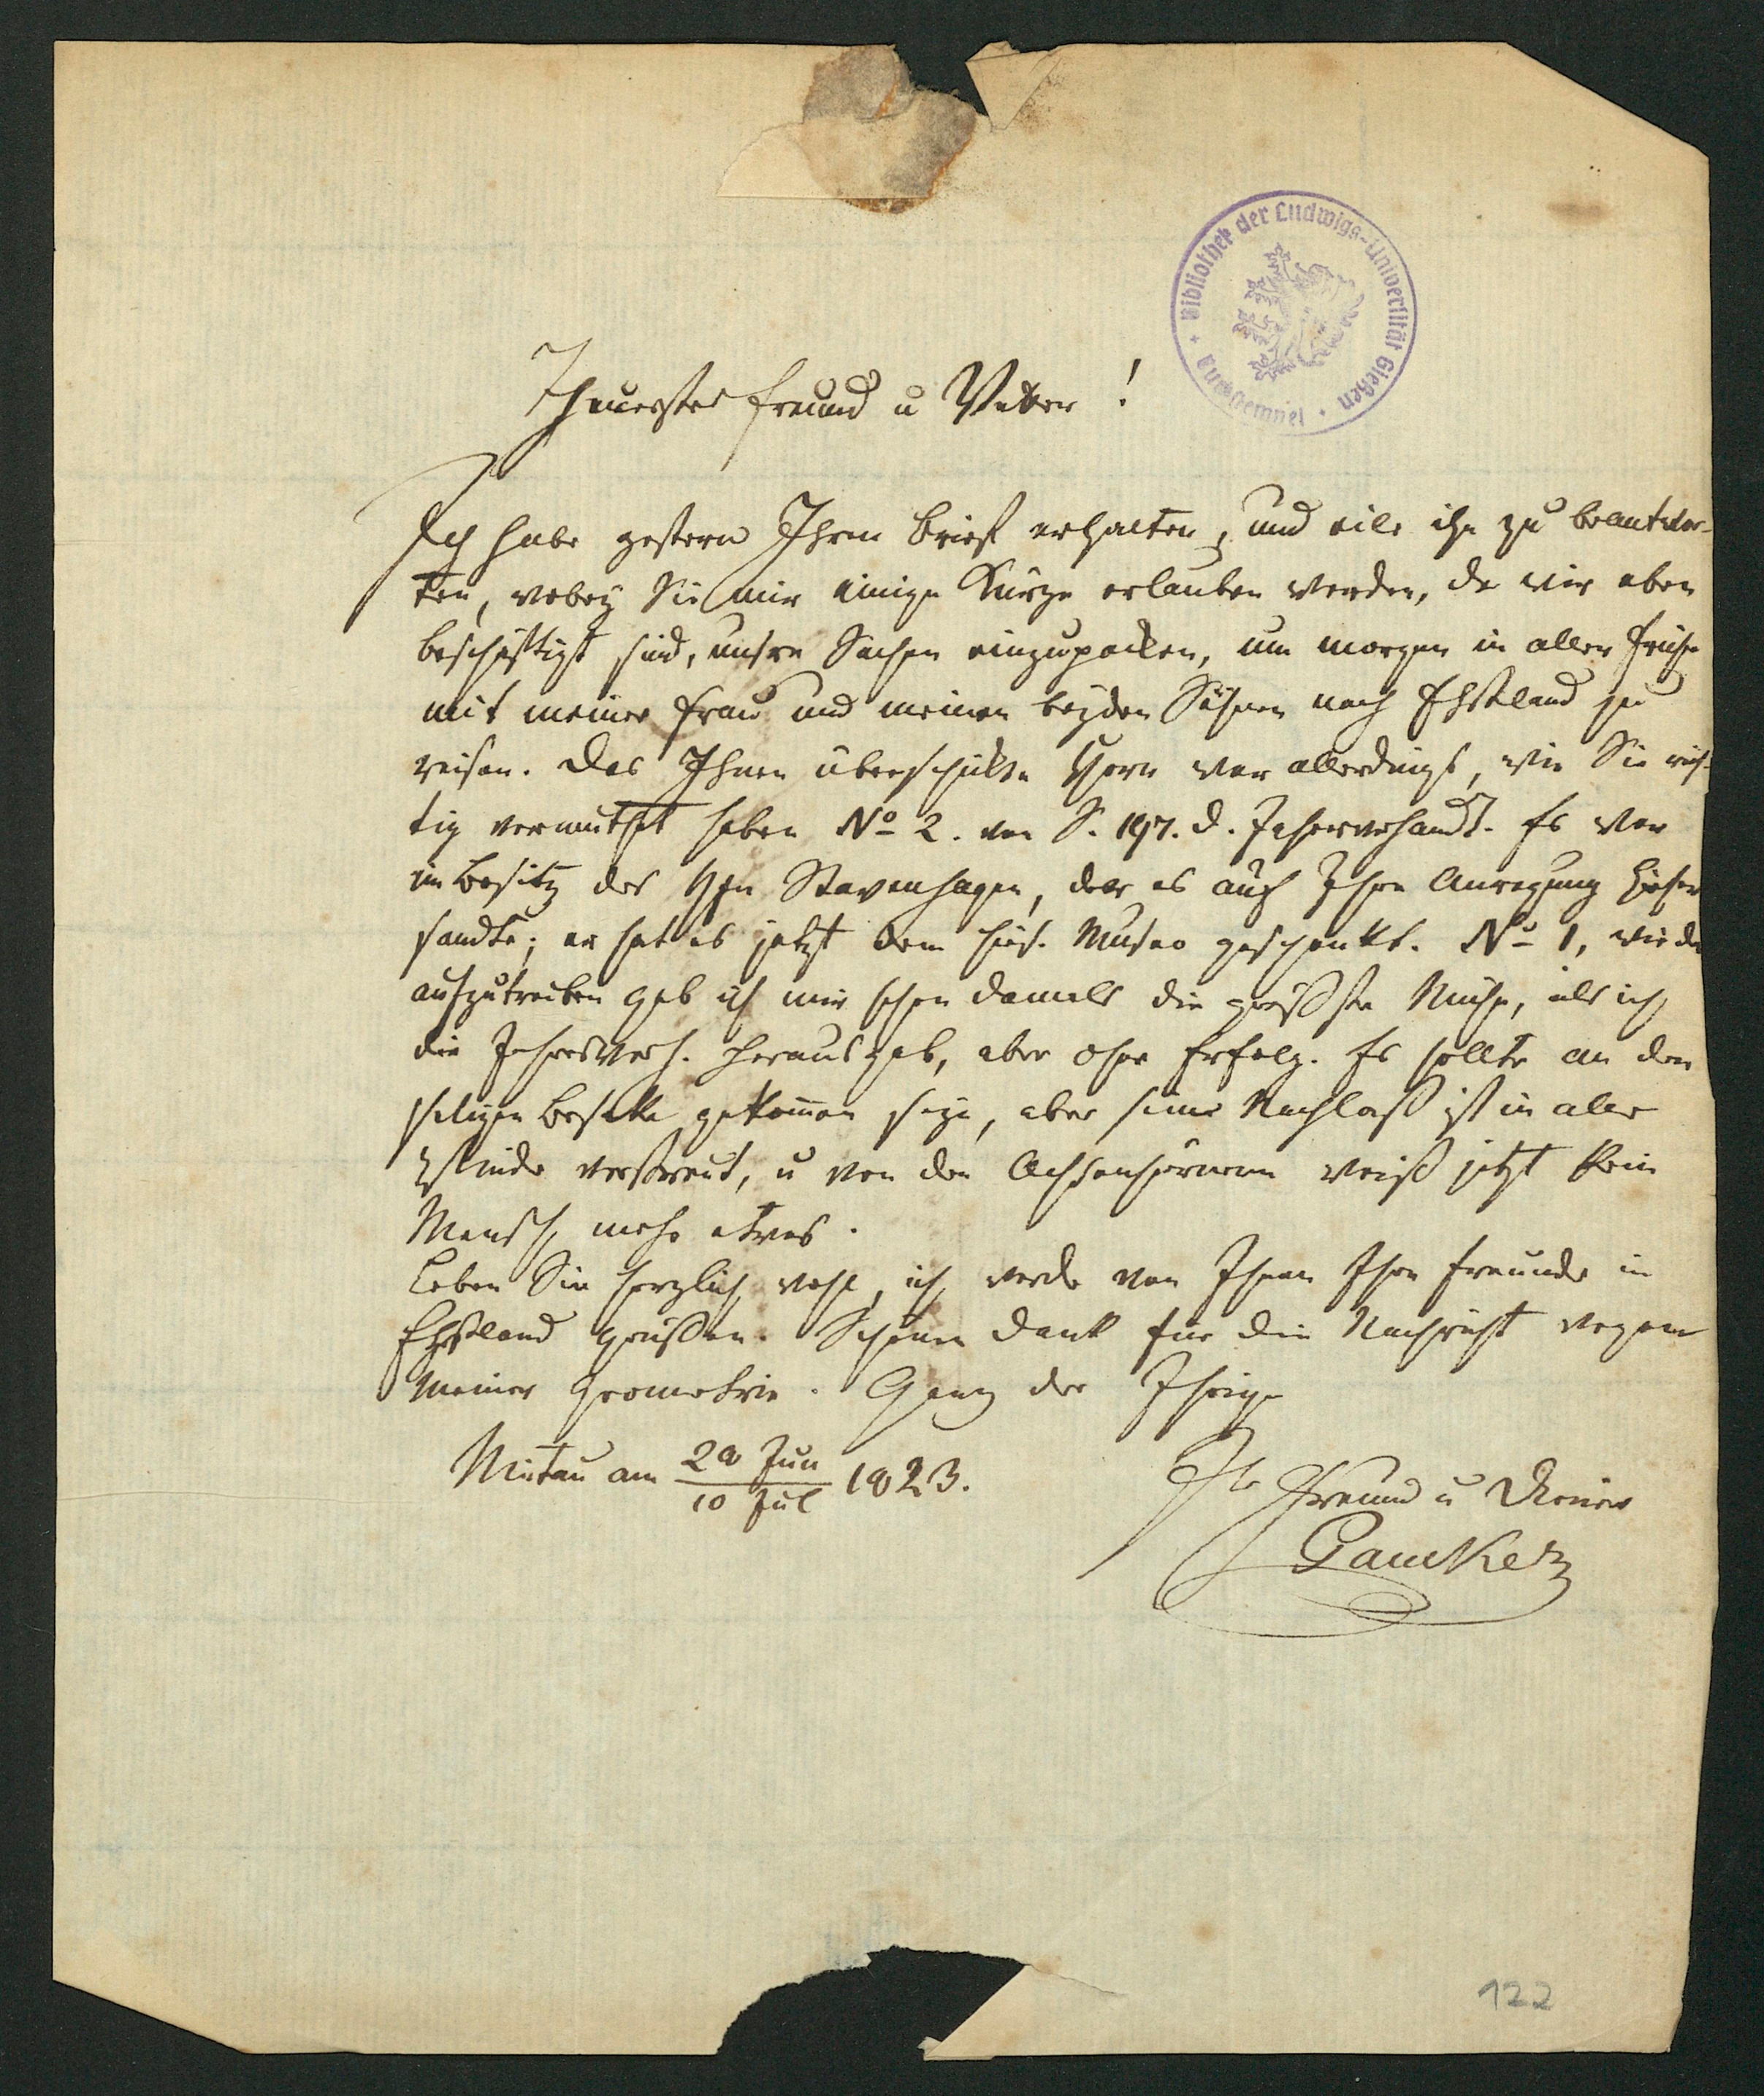 Bibliothek der Ludwigs-Universität Gießen
Theuerster Freund u Vetter!
Ich habe gestern Ihren Brief erhalten, und eile ihn zu beantwor-
ten, wobey Sie mir einige Kürze erlauben werden, da wir eben
beschäftigt sind, unsre Sachen einzupacken, um morgen in aller Frühe
mit meiner Frau und meinen beyden Söhnen nach Ehstland zu
reisen. Das Ihnen überschickte Horn war allerdings, wie Sie rich-
tig vermuthet haben No 2. von S. 197. d. Jahresverhandl. Es war
im Besitz des Hrn Stavenhagen, der es auf Ihre Anregung hieher
sandte; er hat es jetzt dem hies. Museo geschenkt. No 1, wieder
aufzutreiben gab ich mir schon damals die größste Mühe, als ich
die Jahresverh. herausgab, aber ohne Erfolg. Es sollte an den
seligen Beseke gekommen seyn, aber seine Nachlaß ist in alle
Winde verstreut, u von den Ochsenhörnern weiß jetzt kein
Mensch mehr etwas.
Leben Sie herzlich wohl, ich werde von Ihnen Ihre Freunde in
Ehstland grüßen. Schönen Dank für die Nachricht wegen
meiner Geometrie. Ganz der Ihrige
Mitau am 28 Jun / 10 Jul 1823.
Ihr Freund u Diener
Paucker
122